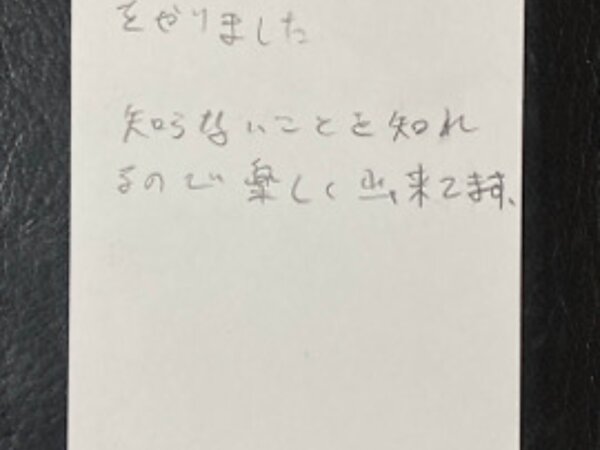 をやりました
知らないことを知れ
るので楽しく出来てます、